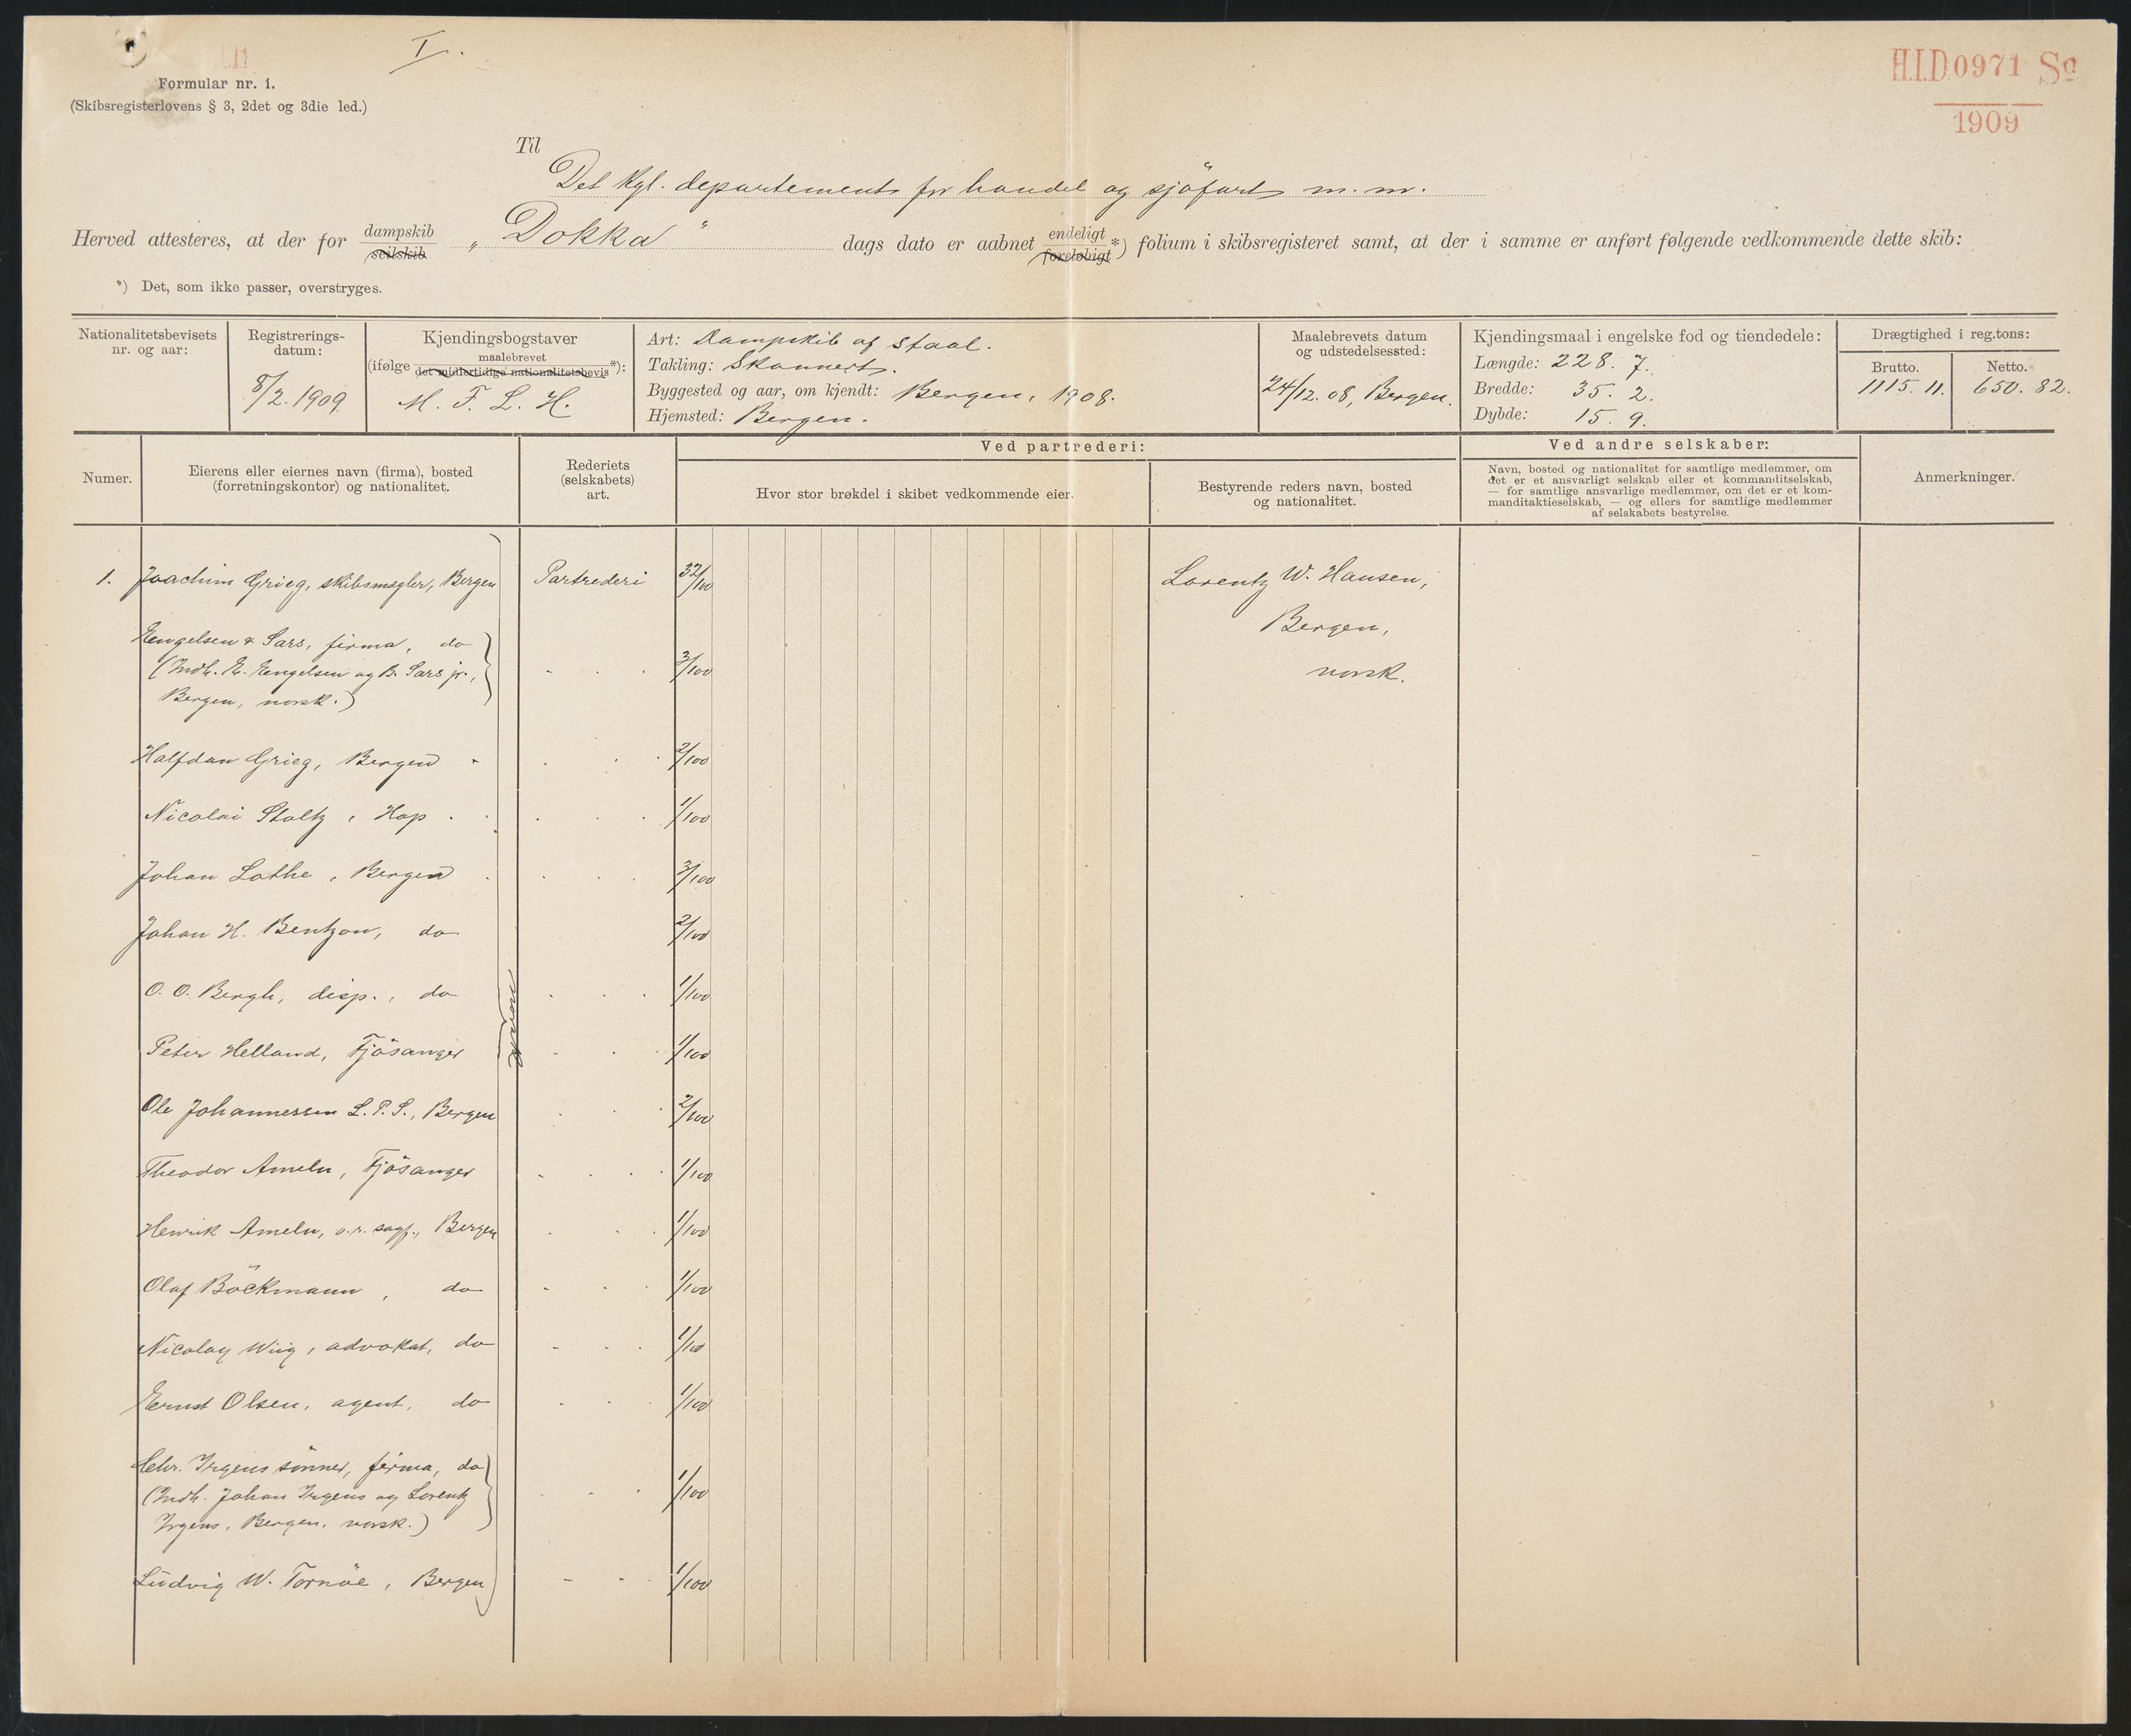 I.
H.I.D 0971 Sø
1909
Formular nr. 1.
(Skibsregisterlovens § 3, 2det og 3die led.)
Til
Det kgl. departement for handel og sjöfart m. m.
Herved attesteres, at der for dampskib seilskib „Dokka“ dags dato er aabnet endeligt foreløbigt *) folium i skibsregisteret samt, at der i samme er anført følgende vedkommende dette skib:
*) Det, som ikke passer, overstryges.
Nationalitetsbevisets nr. og aar:
Registrerings-datum:
8/2. 1909.
Kjendingsbogstaver
(ifølge maalebrevet det midlertidige nationalitetsbevis *):
M. F. L. H.
Art: Dampskib af staal.
Takling: Skonnert.
Byggested og aar, om kjendt: Bergen, 1908.
Hjemsted: Bergen.
Maalebrevets datum og udstedelsessted:
24/12. 08, Bergen.
Kjendingsmaal i engelske fod og tiendedele:
Længde: 228. 7.
Bredde: 35. 2.
Dybde: 15. 9.
Drægtighed i reg.tons:
Brutto. 1115. 11.
Netto. 650. 82.
Numer.
Eierens eller eiernes navn (firma), bosted
(forretningskontor) og nationalitet.
Rederiets
(selskabets)
art.
Ved partrederi:
Hvor stor brøkdel i skibet vedkommende eier.
Bestyrende reders navn, bosted
og nationalitet.
Ved andre selskaber:
Navn, bosted og nationalitet for samtlige medlemmer, om
det er et ansvarligt selskab eller et kommanditselskab,
— for samtlige ansvarlige medlemmer, om det er et kom-
manditaktieselskab, — og ellers for samtlige medlemmer
af selskabets bestyrelse.
Anmerkninger.
1. Joachim Grieg, skibsmægler, Bergen Partrederi 32/100 Lorentz W. Hansen,
Bergen,
norsk.
Engelsen & Sars, firma, do
(Indh. E. Engelsen og B. Sars jr., - . . 3/100
Bergen, norsk.)
Halfdan Grieg, Bergen - . . . 2/100
Nicolai Stoltz, Hop . . . . . 1/100
Johan Lothe, Bergen . . . . 3/100
Johan H. Bentzon, do 2/100
O. O. Bergh, disp., do . . . 1/100
norsk
Peter Helland, Fjösanger - . . 1/100
Ole Johannessen L. P. S., Bergen . . . 2/100
Theodor Ameln, Fjösanger . . . 1/100
Henrik Ameln, o.r. sagf., Bergen . . . 1/100
Olaf Böckmann, do - . . 1/100
Nicolay Wiig, advokat, do - . . 1/100
Ernst Olsen, agent, do . . . 1/100
Chr. Irgens sönner, firma, do
(Indh. Johan Irgens og Lorentz . . . 1/100
Irgens, Bergen, norsk.)
Ludvig W. Tornöe, Bergen - . . 1/100